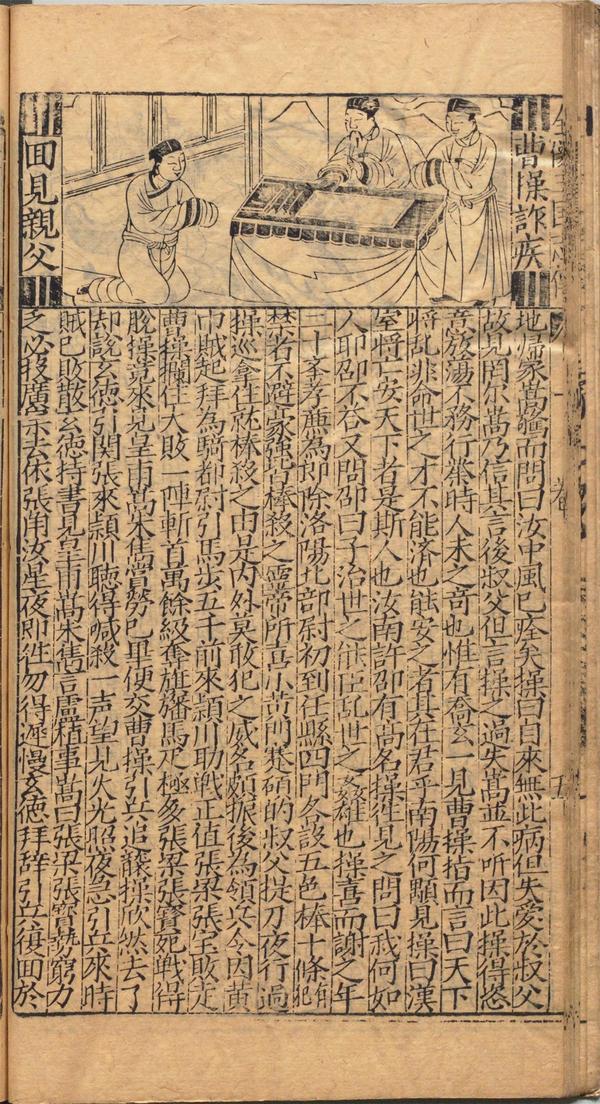 曹操詐疾
回見親父
地歸家嵩驚而問曰汝中風已痊矣操曰自來無此病但失愛於叔父
故見罔尔嵩乃信其言後叔父但言操之過失嵩並不听因此操得恣
意放蕩不務行業時人未之奇也惟有喬玄一見曹操指而言曰天下
將乱非命世之才不能济也能安之者其在君乎南陽何顒見操曰漢
室將亡安天下者是斯人也汝南許邵有高名操徃見之問曰我何如
人耶邵不荅又問邵曰子治世之能臣乱世之姦雄也操喜而謝之年
二十举孝廉為郎除洛陽北部尉初到任縣四門各設五色棒十條有犯
禁者不避豪強皆棒殺之霊帝所喜小黃門蹇碩的叔父提刀夜行過
操巡拿住就棒殺之由是内外莫敢犯之威名頗振後為頓丘令因黃
巾賊起拜為騎都尉引馬步五千前來頴川助戰正值張梁張宝敗走
曹操攔住大敗一陣斬首萬餘級奪旗旛馬疋極多張梁張寶死戰得
脫操竟來見皇甫嵩朱雋賞劳已畢便交曹操引兵追襲操欣然去了
却說玄德引関張來頴川聴得喊殺一声望見火光照夜急引兵來時
賊已敗散玄德持書見皇甫嵩朱雋言盧植事嵩曰張梁張寶勢窮力
之必投廣宗去依張角汝星夜即徃勿得遲慢玄德拜辞引兵復回於
五